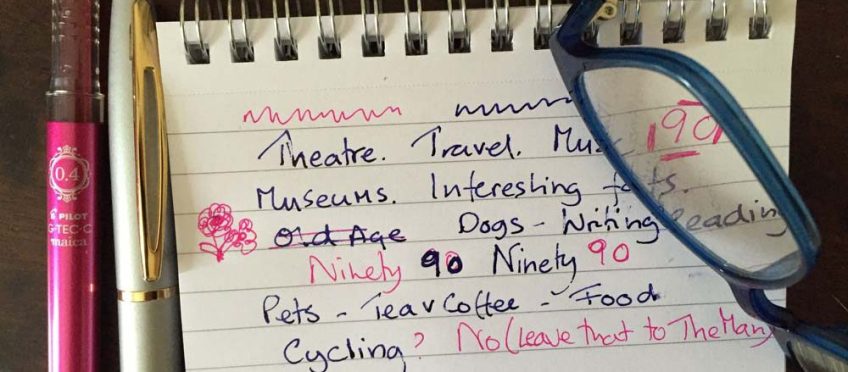 Theatre. Travel. Mus 90
Museums. Interesting facts.
Old Age Dogs - Writing Reading
Ninety 90 Ninety 90
Pets - Tea v Coffee - Food
Cycling? No (leave that to The Man)
0.4
PILOT
G-TEC-C
maica